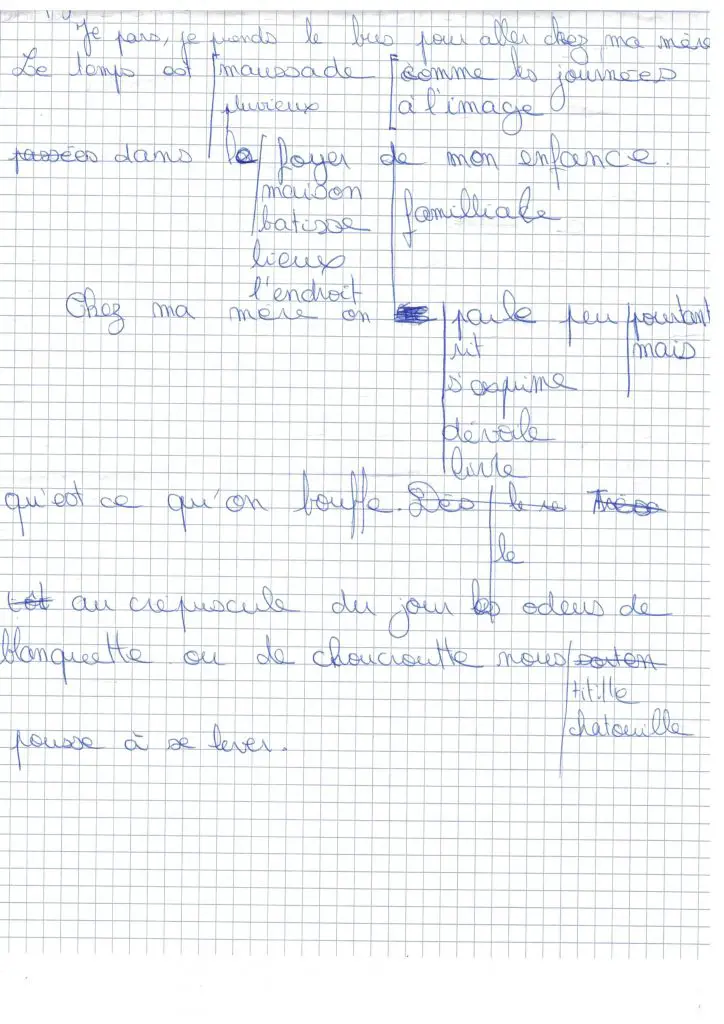 Je pars, je prends le bus pour aller chez ma mère
Le temps est maussade comme les journées
pluvieux à l'image
passées dans le foyer de mon enfance.
maison familliale
batisse
lieux
l'endroit
Chez ma mère on parle peu pourtant
rit mais
s'exprime
dévoile
livre
qu'est ce qu'on bouffe. Dès le
le
tôt au crépuscule du jour les odeurs de
blanquette ou de chouchroutte nous
titille
chatouille
pousse à se lever.